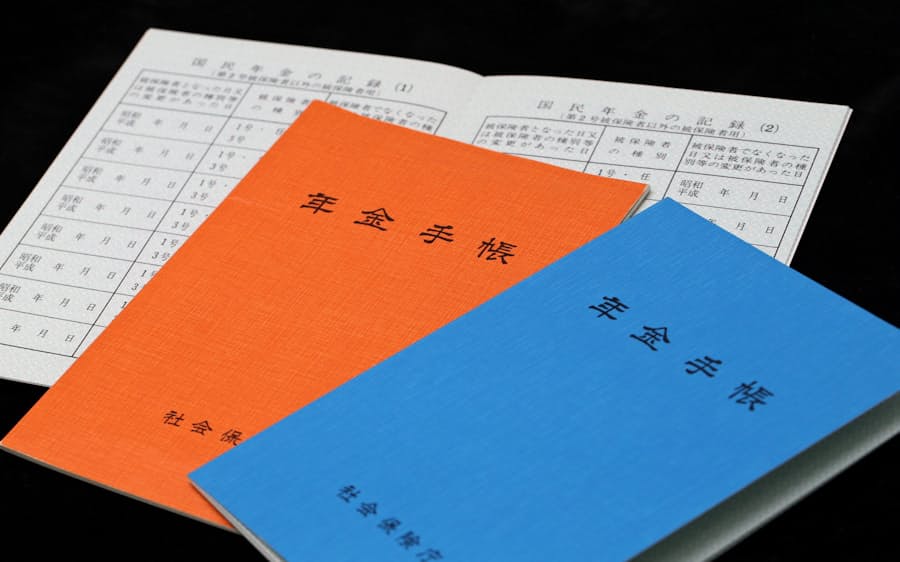 国民年金の記録(1)
(第2号被保険者以外の被保険者用)
被保険者となった日又
は被保険者の種別等
の変更があった日
被保険者
の種別
被保険者でなくなった
昭和
平成 年 月 日
1号・任
3号
昭和
平成 年 月 日
1号・
3号
昭和
平成 年 月 日
1号・
3号
昭和
平成 年 月 日
1号・
3号
昭和
平成 年 月 日
1号
3号
昭和
平成 年 月 日
年 月 日
国民年金の記録(2)
(第2号被保険者以外の被保険者用)
被保険者となった日又
は被保険者の種別等
の変更があった日
被保険者
の種別
被保険者でなくなった
日又は被保険者の種
別等の変更があった日
1号・任
昭和
平成 年 月 日
年 月 日
年金手帳
社会保
年金手帳
社会保険庁